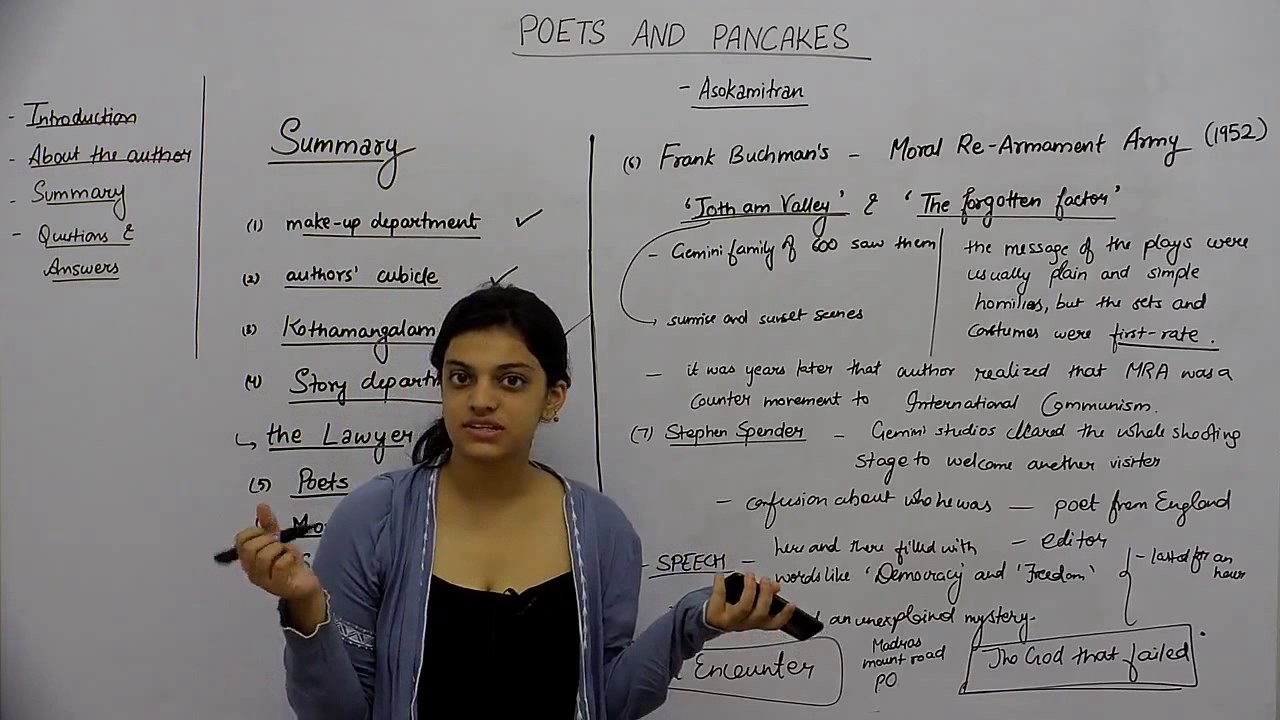 POETS AND PANCAKES
- Asokamitran
- Introduction
- About the author
- Summary
- Questions &
Answers
Summary
(1) make-up department ✓
(2) authors' cubicle ✓
(3) Kothamangalam
(4) Story departm
↳ the Lawyer
(5) Poets
Mo
(6) Frank Buchman's - Moral Re-Armament Army (1952)
'Jotham Valley' & 'The forgotten factor'
- Gemini family of 600 saw them
→ sunrise and sunset scenes
the message of the plays were
usually plain and simple
homilies, but the sets and
costumes were first-rate.
- it was years later that author realized that MRA was a
counter movement to International Communism.
(7) Stephen Spender - Gemini studios cleared the whole shooting
stage to welcome another visiter
- confusion about who he was - poet from England
- editor
- SPEECH - here and there filled with
words like 'Democracy' and 'Freedom'
- lasted for an
hour
an unexplained mystery.
Encounter
Madras
mount road
PO
The God that failed